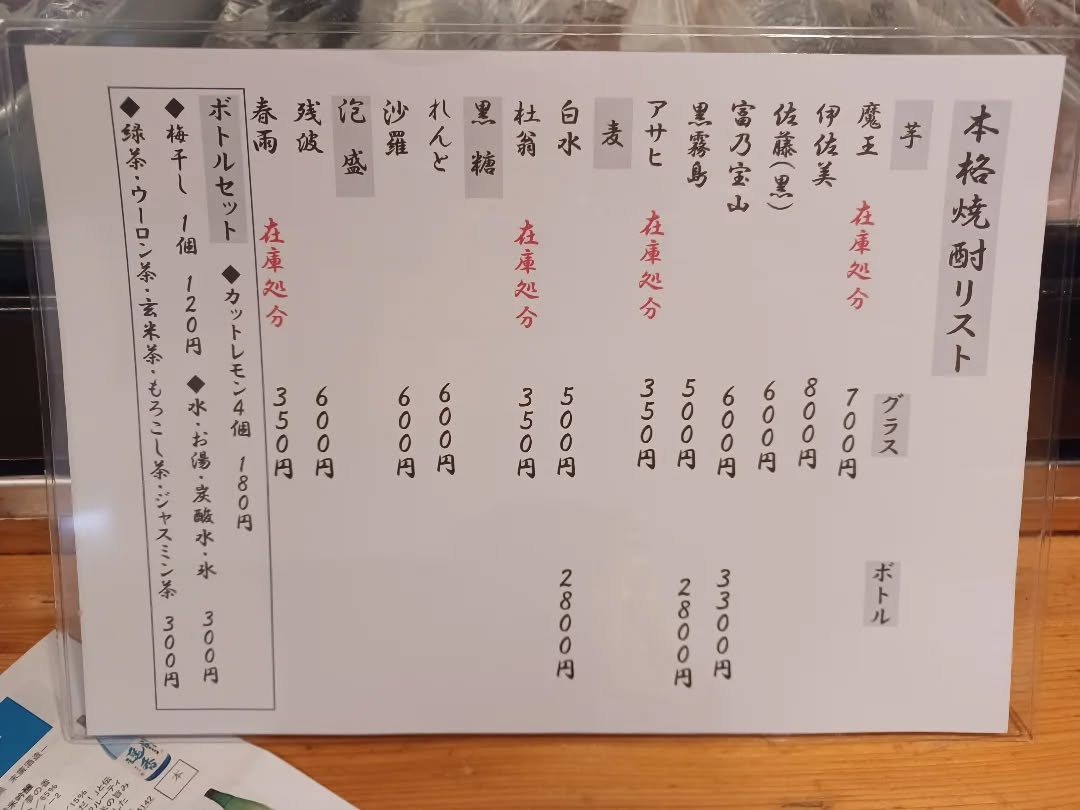 本格焼酎リスト
芋 グラス ボトル
魔王 在庫処分 700円
伊佐美 800円
佐藤(黒) 600円
富乃宝山 600円 3300円
黒霧島 500円 2800円
アサヒ 在庫処分 350円
麦
白水 500円 2800円
杜翁 在庫処分 350円
黒糖
れんと 600円
沙羅 600円
泡盛
残波 600円
春雨 在庫処分 350円
ボトルセット ◆カットレモン4個 180円
◆梅干し 1個 120円 ◆水・お湯・炭酸水・氷 300円
◆緑茶・ウーロン茶・玄米茶・もろこし茶・ジャスミン茶 300円